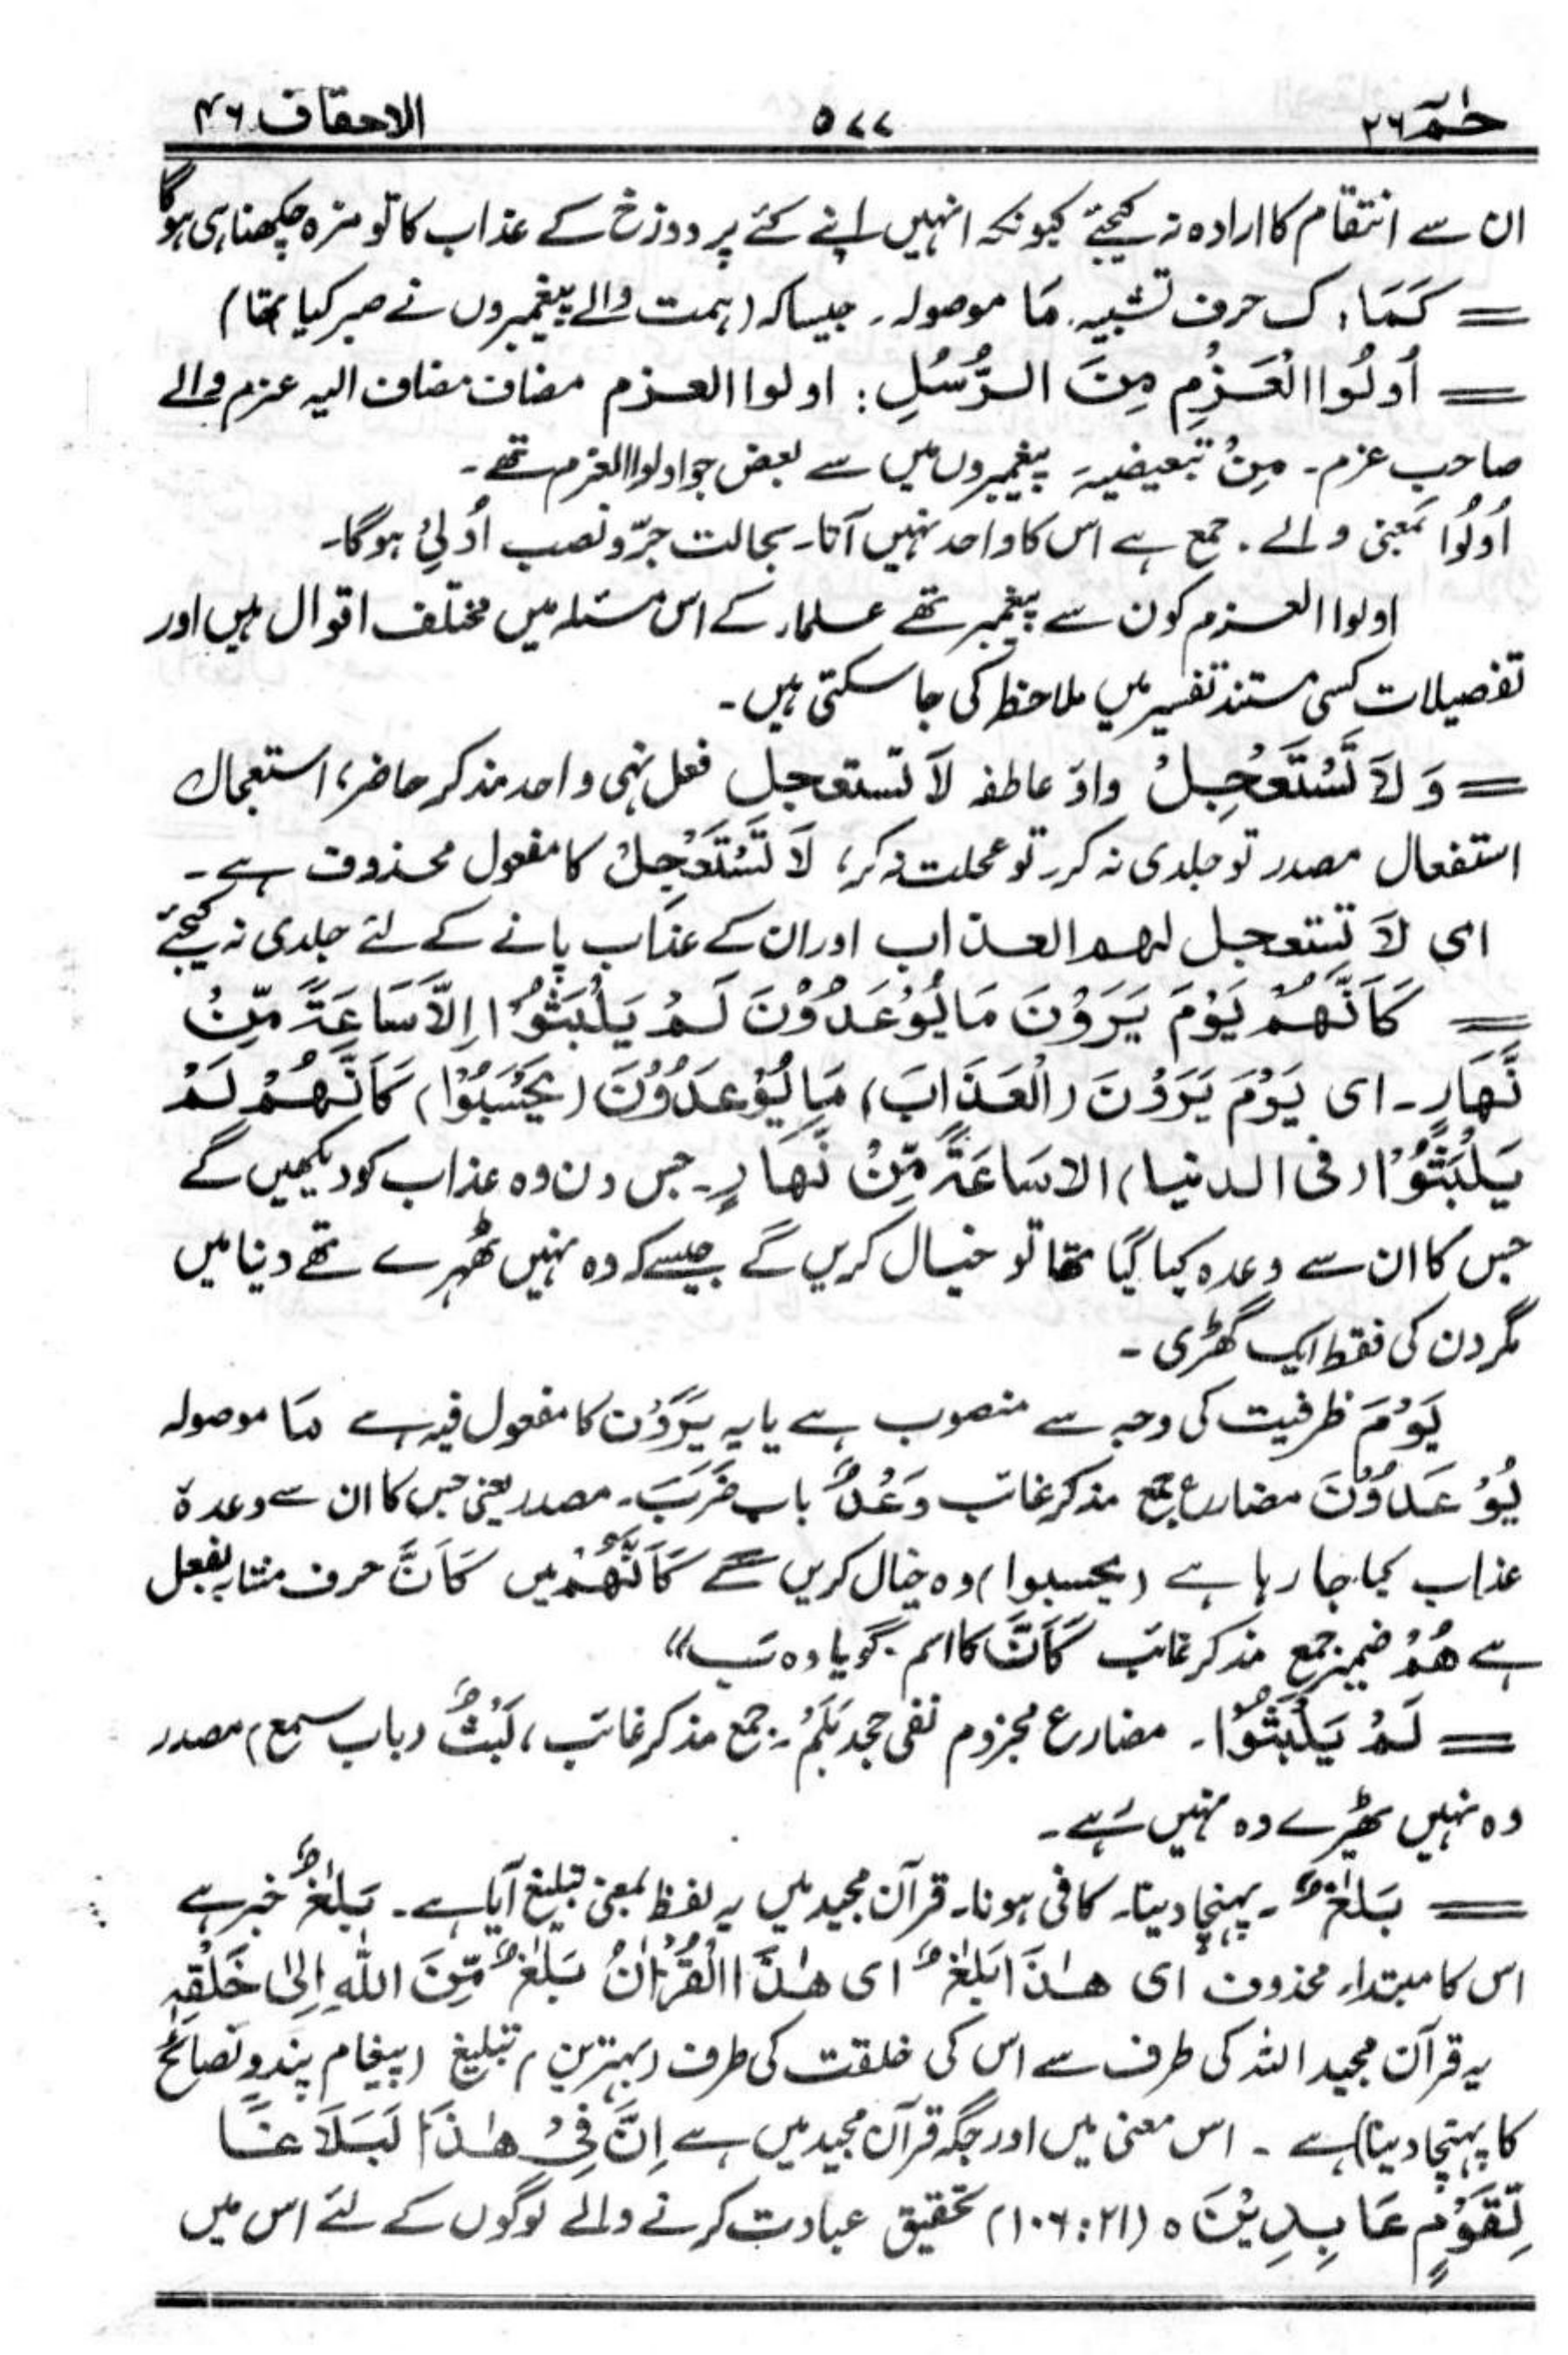 حٰمٓ ۲۶ ۵۷۷ الاحقاف ۴۶
ان سے انتقام کا ارادہ نہ کیجئے کیونکہ انہیں اپنے کئے پر دوزخ کے عذاب کا تو مزہ چکھنا ہی ہوگا
= كَمَا، ک حرف تشبیہ۔ مَا موصولہ۔ جیسا کہ (ہمت والے پیغمبروں نے صبر کیا تھا)
= اُولُوا الْعَزْمِ مِنَ الرُّسُلِ: اولوا العزم مضاف مضاف الیہ عزم والے
صاحب عزم۔ مِنْ تبعیضیہ پیغمبروں میں سے بعض جو اولوا العزم تھے۔
اُولُوا بمعنی والے۔ جمع ہے اس کا واحد نہیں آتا۔ بحالت جرّ و نصب اُولِیْ ہوگا۔
اولوا العزم کون سے پیغمبر تھے علماء کے اس مسئلہ میں مختلف اقوال ہیں اور
تفصیلات کسی مستند تفسیر میں ملاحظہ کی جا سکتی ہیں۔
= وَلَا تَسْتَعْجِلْ واؤ عاطفہ لَا تستعجل فعل نہی واحد مذکر حاضر، استعجال
استفعال مصدر تو جلدی نہ کر۔ تو عجلت نہ کر، لَا تَسْتَعْجِلْ کا مفعول محذوف ہے۔
ای لَا تستعجل لہم العذاب اور ان کے عذاب پانے کے لئے جلدی نہ کیجئے
= كَاَنَّهُمْ يَوْمَ يَرَوْنَ مَا يُوْعَدُوْنَ لَمْ يَلْبَثُوْا اِلَّا سَاعَةً مِّنْ
نَّهَارٍ۔ ای يَوْمَ يَرَوْنَ (الْعَذَابَ) مَا يُوْعَدُوْنَ (يَحْسَبُوْا) كَاَنَّهُمْ لَمْ
يَلْبَثُوْا (فی الدنیا) الا سَاعَةً مِّنْ نَّهَارٍ۔ جس دن وہ عذاب کو دیکھیں گے
جس کا ان سے وعدہ کیا گیا تھا تو خیال کریں گے جیسے کہ وہ نہیں ٹھہرے تھے دنیا میں
مگر دن کی فقط ایک گھڑی۔
يَوْمَ ظرفیت کی وجہ سے منصوب ہے یا یہ يَرَوْن کا مفعول فیہ ہے مَا موصولہ
يُوْعَدُوْنَ مضارع جمع مذکر غائب وَعْدٌ باب ضَرَبَ۔ مصدر یعنی جس کا ان سے وعدہ
عذاب کیا جا رہا ہے (یحسبوا) وہ خیال کریں گے كَاَنَّهُمْ میں كَاَنَّ حرف مشابہ بفعل
ہے هُمْ ضمیر جمع مذکر غائب كَاَنَّ کا اسم۔ گویا وہ سب"
= لَمْ يَلْبَثُوْا۔ مضارع مجزوم نفی جحد بَلَمْ۔ جمع مذکر غائب، لَبْثٌ (باب سمع) مصدر
وہ نہیں ٹھیرے وہ نہیں رہے۔
= بَلٰغٌ۔ پہنچا دینا۔ کافی ہونا۔ قرآن مجید میں یہ لفظ بمعنی تبلیغ آیا ہے۔ بَلٰغٌ خبر ہے
اس کا مبتداء محذوف ای هٰذَا بَلٰغٌ ای هٰذَا الْقُرْاٰنُ بَلٰغٌ مِّنَ اللّٰهِ اِلٰى خَلْقِهٖ
یہ قرآن مجید اللہ کی طرف سے اس کی خلقت کی طرف (بہترین) تبلیغ (پیغام پند و نصائح
کا پہنچا دینا) ہے۔ اس معنی میں اور جگہ قرآن مجید میں ہے اِنَّ فِيْ هٰذَا لَبَلَاغًا
لِّقَوْمٍ عَابِدِيْنَ ہ (۲۱:۱۰۶) تحقیق عبادت کرنے والے لوگوں کے لئے اس میں